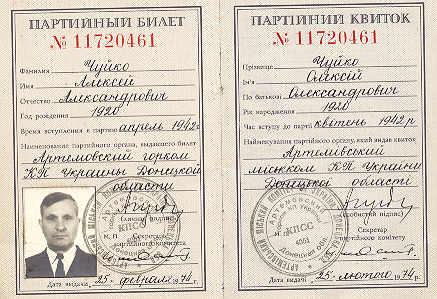 ПАРТИЙНЫЙ БИЛЕТ
№ 11720461
Фамилия Чуйко
Имя Алексей
Отчество Александрович
Год рождения 1920
Время вступления в партию апрель 1942 г
Наименование партийного органа, выдавшего билет
Артемовский горком
КП Украины Донецкой
области
(личная подпись)
М. П. Секретарь
партийного комитета
Дата выдачи 25 февраля 1974 г.
ПАРТІЙНИЙ КВИТОК
№ 11720461
Прізвище Чуйко
Ім'я Олексій
По батькові Олександрович
Рік народження 1920
Час вступу до партії квітень 1942 р
Найменування партійного органу, який видав квиток
Артемівський
міськком КП України
Донецької області
(особистий підпис)
М. П. Секретар
партійного комітету
КПСС
Дата видачі 25 лютого 1974 р.